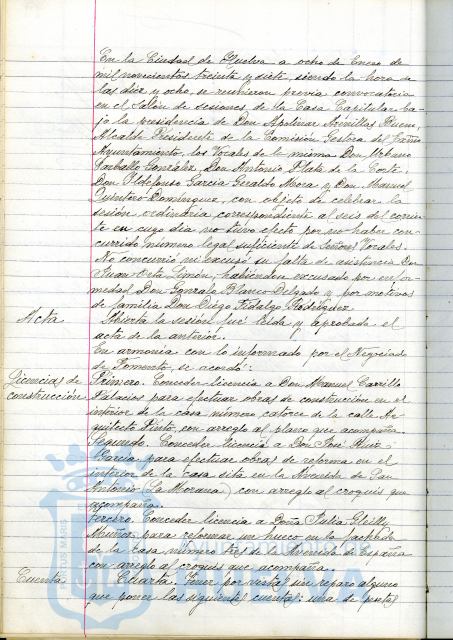 En la Ciudad de Huelva a ocho de Enero de
mil novecientos treinta y siete, siendo la hora de
las diez y ocho, se reunieron previa convocatoria
en el Salón de sesiones de la Casa Capitular ba-
jo la presidencia de Don Apolinar Arenillas
Alcalde Presidente de la Comisión Gestora del Excmo
Ayuntamiento, los Vocales de la misma Don Urbano
Carballo González, Don Antonio Plata de la Corte,
Don Ildefonso García Geraldo Mora y Don Manuel
Quintero Domínguez, con objeto de celebrar la
sesión ordinaria correspondiente al seis del corrien-
te en cuyo día no tuvo efecto por no haber con-
currido número legal suficiente de Señores Vocales.
No concurrió ni excusó su falta de asistencia Don
Juan Limón, habiendo excusado por enfer-
medad Don Gonzalo Blanco Delgado y por motivos
de familia Don Diego Fidalgo Rodríguez.
Acta Abierta la sesión fué leída y aprobada el
acta de la anterior.
En armonía con lo informado por el Negociado
de Fomento, se acordó:
Licencias de construcción Primero. Conceder licencia a Don Manuel Carrillo
Palacios para efectuar obras de construcción en el
interior de la casa número catorce de la calle Ar-
quitecto Pinto, con arreglo al plano que acompaña.
Segundo. Conceder licencia a Don José Ruiz
García para efectuar obras de reforma en el
interior de la casa sita en la Avenida de San
Antonio (La Morana) con arreglo al croquis que
acompaña.
Tercero. Conceder licencia a Doña Julia
Muñoz para reformar un hueco en la fachada
de la casa número tres de Avenida de España
con arreglo al croquis que acompaña.
Cuentas Cuarta. Tener por vistas sin reparo alguno
que poner las siguientes cuentas: una de pesetas